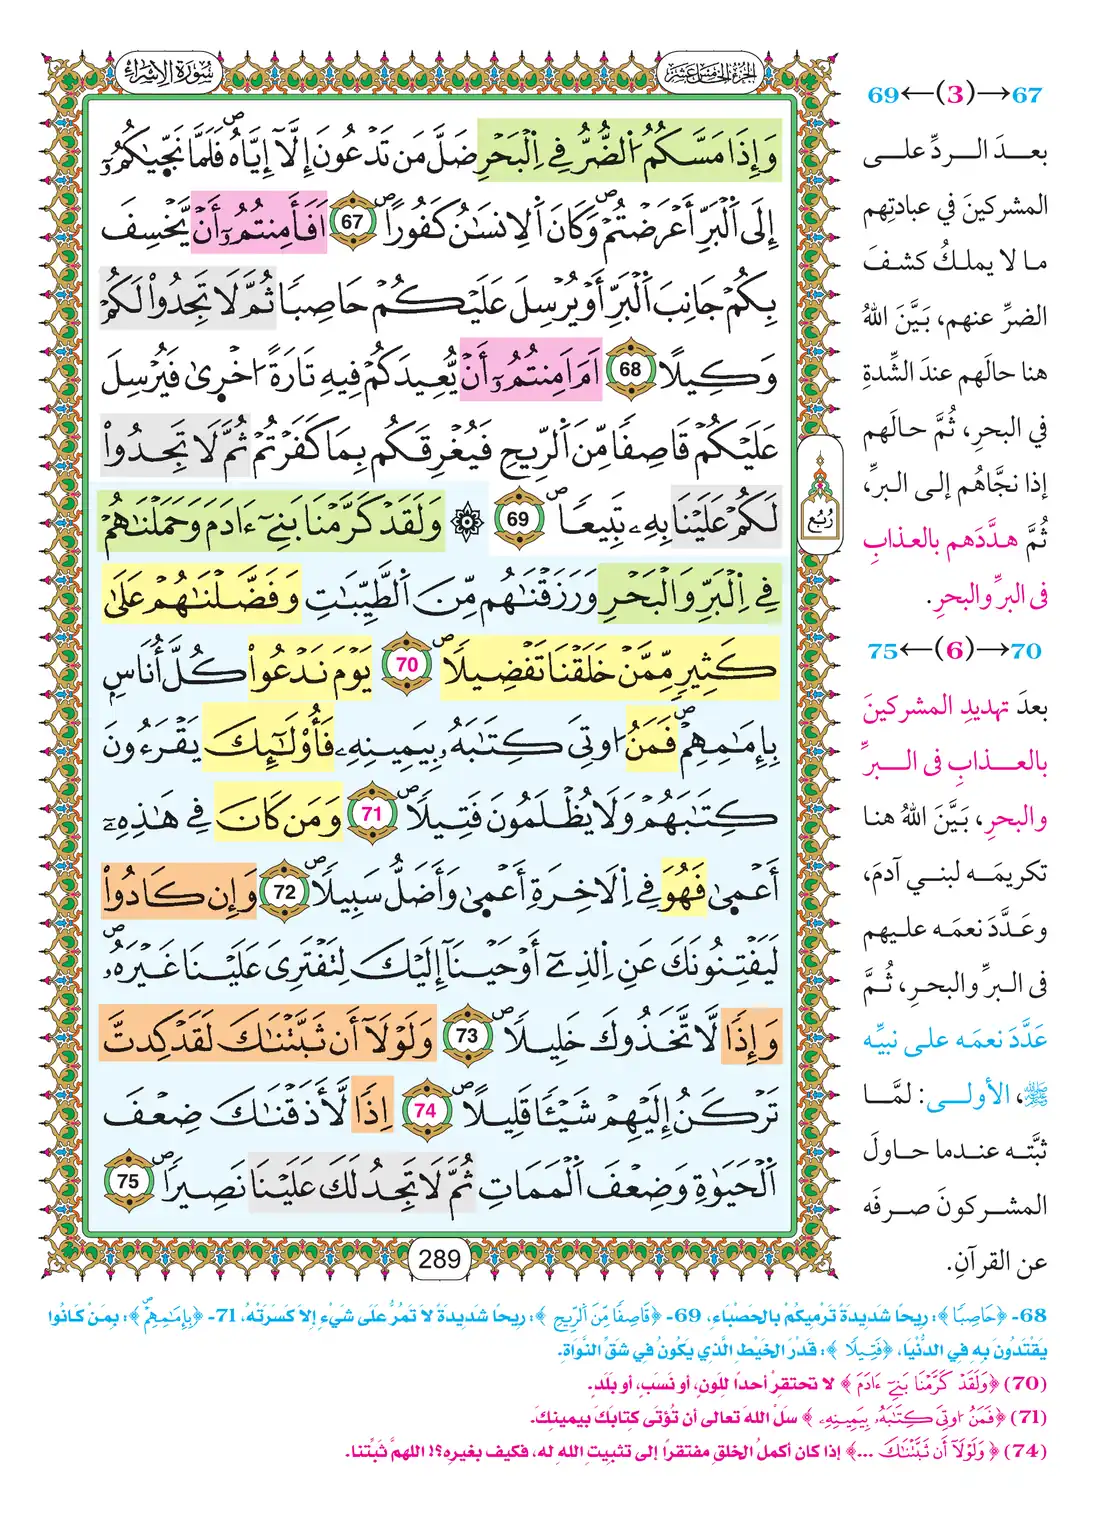 سُورَةُ الإِسْرَاءِ
الجزء الخامس عشر
وَإِذَا مَسَّكُمُ اُلضُّرُّ فِے اِلْبَحْرِ ضَلَّ مَن تَدْعُونَ إِلَّآ إِيَّاهُ ۖ فَلَمَّا نَجّ۪يٰكُمُۥٓ
إِلَى اَلْبَرِّ أَعْرَضْتُمْ ۖ وَكَانَ اَلِانسَٰنُ كَفُورًا ۖ 67 اَفَأَمِنتُمُۥٓ أَنْ يَّخْسِفَ
بِكُمْ جَانِبَ اَلْبَرِّ أَوْ يُرْسِلَ عَلَيْكُمْ حَاصِبًا ثُمَّ لَا تَجِدُواْ لَكُمْ
وَكِيلًا 68 اَمَ اَمِنتُمُۥٓ أَنْ يُّعِيدَكُمْ فِيهِ تَارَةً ا۟خْر۪ىٰ فَيُرْسِلَ
عَلَيْكُمْ قَاصِفًا مِّنَ اَلرِّيحِ فَيُغْرِقَكُم بِمَا كَفَرْتُمْ ثُمَّ لَا تَجِدُواْ
لَكُمْ عَلَيْنَا بِهِۦ تَبِيعًا ۖ 69 ۞ وَلَقَدْ كَرَّمْنَا بَنِےٓ ءَادَمَ وَحَمَلْنَٰهُمْ
فِے اِلْبَرِّ وَالْبَحْرِ وَرَزَقْنَٰهُم مِّنَ اَلطَّيِّبَٰتِ وَفَضَّلْنَٰهُمْ عَلَىٰ
كَثِيرٍ مِّمَّنْ خَلَقْنَا تَفْضِيلًا ۖ 70 يَوْمَ نَدْعُواْ كُلَّ أُنَاسٍ
بِإِمَٰمِهِمْ ۖ فَمَنُ ا۟وتِيَ كِتَٰبَهُۥ بِيَمِينِهِۦ فَأُوْلَٰٓئِكَ يَقْرَءُونَ
كِتَٰبَهُمْ وَلَا يُظْلَمُونَ فَتِيلًا ۖ 71 وَمَن كَانَ فِے هَٰذِهِۦٓ
أَعْم۪ىٰ فَهُوَ فِے اِلَاخِرَةِ أَعْم۪ىٰ وَأَضَلُّ سَبِيلًا ۖ 72 وَإِن كَادُواْ
لَيَفْتِنُونَكَ عَنِ اِلذِےٓ أَوْحَيْنَآ إِلَيْكَ لِتَفْتَرِيَ عَلَيْنَا غَيْرَهُۥ ۖ
وَإِذًا لَّاتَّخَذُوكَ خَلِيلًا ۖ 73 وَلَوْلَآ أَن ثَبَّتْنَٰكَ لَقَدْ كِدتَّ
تَرْكَنُ إِلَيْهِمْ شَيْـًٔا قَلِيلًا ۖ 74 اِذًا لَّأَذَقْنَٰكَ ضِعْفَ
اَلْحَيَوٰةِ وَضِعْفَ اَلْمَمَاتِ ثُمَّ لَا تَجِدُ لَكَ عَلَيْنَا نَصِيرًا ۖ 75
رُبُع
289
67→(3)←69
بعدَ الردِّ على
المشركينَ في عبادتِهم
ما لا يملكُ كشفَ
الضرِّ عنهم، بَيَّنَ اللهُ
هنا حالَهم عندَ الشِّدةِ
في البحرِ، ثُمَّ حالَهم
إذا نجَّاهُم إلى البرِّ،
ثُمَّ هدَّدَهم بالعذابِ
في البرِّ والبحرِ.
70→(6)←75
بعدَ تهديدِ المشركينَ
بالعذابِ في البرِّ
والبحرِ، بَيَّنَ اللهُ هنا
تكريمَه لبني آدمَ،
وعَدَّدَ نعمَه عليهم
في البرِّ والبحرِ، ثُمَّ
عَدَّدَ نعمَه على نبيِّه
ﷺ، الأولى: لمَّا
ثبَّته عندما حاولَ
المشركونَ صرفَه
عن القرآنِ.
68- ﴿حَاصِبًا﴾: رِيحًا شَدِيدَةً تَرْمِيكُمْ بِالحَصْبَاءِ، 69- ﴿قَاصِفًا مِّنَ اَلرِّيحِ﴾: رِيحًا شَدِيدَةً لاَ تَمُرُّ عَلَى شَيْءٍ إِلاَّ كَسَرَتْهُ، 71- ﴿بِإِمَٰمِهِمْ ۖ﴾: بِمَنْ كَانُوا
يَقْتَدُونَ بِهِ فِي الدُّنْيَا، ﴿فَتِيلًا﴾: قَدْرَ الخَيْطِ الَّذِي يَكُونُ فِي شَقِّ النَّوَاةِ.
(70) ﴿وَلَقَدْ كَرَّمْنَا بَنِےٓ ءَادَمَ﴾ لا تحتقرْ أحداً للونٍ، أو نَسَبٍ، أو بلَدٍ.
(71) ﴿فَمَنُ ا۟وتِيَ كِتَٰبَهُۥ بِيَمِينِهِۦ﴾ سَلْ اللهَ تعالى أن تُؤتَى كتابَكَ بيمينِكَ.
(74) ﴿وَلَوْلَآ أَن ثَبَّتْنَٰكَ ...﴾ إذا كان أكملُ الخلقِ مفتقراً إلى تثبيتِ اللهِ له، فكيف بغيرِه؟! اللهمَّ ثبِّتنا.